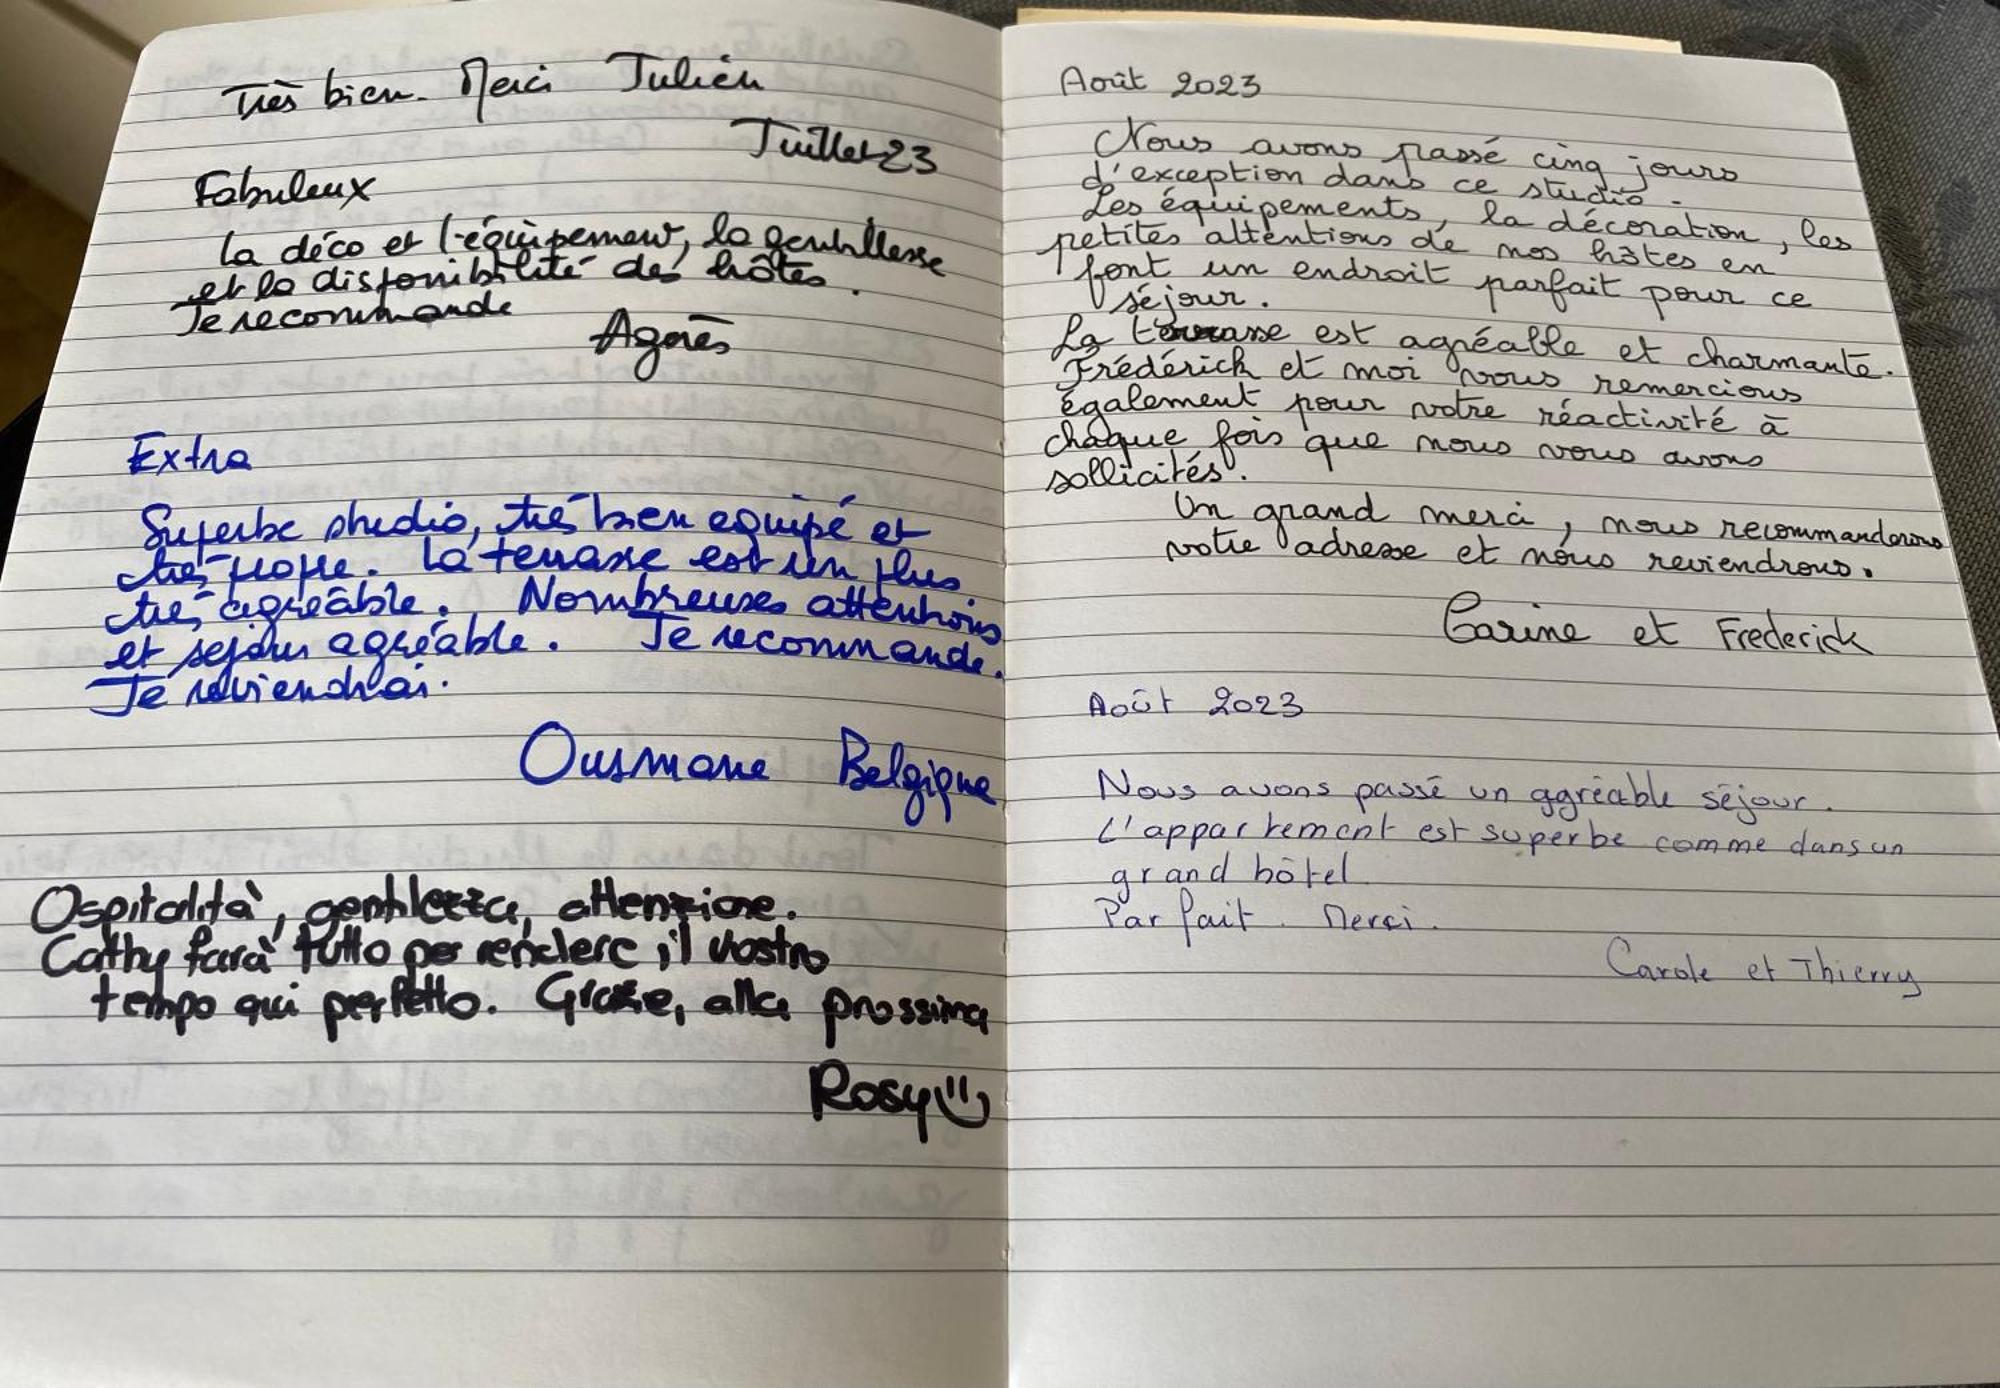 Très bien. Merci Julien
Juillet 23
Fabuleux
la déco et l'équipement, la gentillesse
et la disponibilité des hôtes.
Je recommande
Agnès
Extra
Superbe studio, très bien equipé et
très propre. La terrasse est un plus
très agréable. Nombreuses attentions
et sejour agréable. Je recommande.
Je reviendrai.
Ousmane Belgique
Ospitalità, gentilezza, attenzione.
Cathy farà tutto per rendere il vostro
tempo qui perfetto. Grazie, alla prossima
Rosy
Août 2023
Nous avons passé cinq jours
d'exception dans ce studio.
Les équipements, la décoration, les
petites attentions de nos hôtes en
font un endroit parfait pour ce
séjour.
La terrasse est agréable et charmante.
Frédérick et moi vous remercions
également pour votre réactivité à
chaque fois que nous vous avons
sollicités.
Un grand merci, nous recommanderons
votre adresse et nous reviendrons.
Carine et Frederick
Août 2023
Nous avons passé un agréable séjour.
L'appartement est superbe comme dans un
grand hôtel
Parfait. Merci.
Carole et Thierry